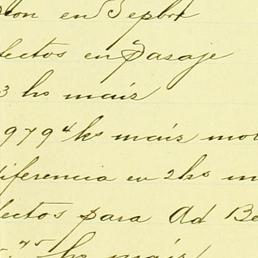 ion en Sepbre
fectos en Pasaje
3 ks maiz
979⁴ ks maiz mo
diferencia en 2 ks m
fectos para Ad Be
⁷⁵ ks maiz